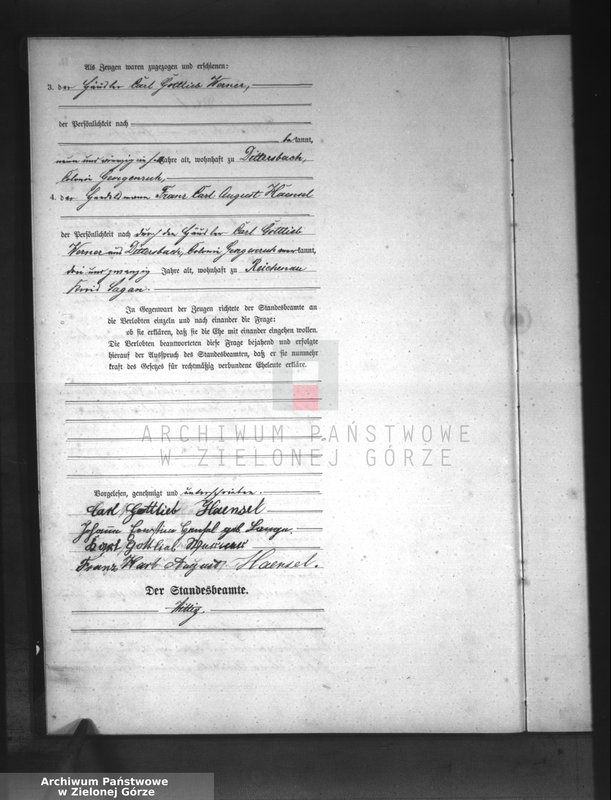 Als Zeugen waren zugezogen und erschienen:
3. der Häusler Carl Gottlieb Werner,
der Persönlichkeit nach
bekannt,
neun und vierzig Jahre alt, wohnhaft zu Dittersbach,
Colonie Georgenruh,
4. der Handelsmann Franz Carl August Haensel
der Persönlichkeit nach durch den Häusler Carl Gottlieb
Werner aus Dittersbach, Colonie Georgenruh anerkannt,
drei und zwanzig Jahre alt, wohnhaft zu Reichenau
Kreis Sagan.
In Gegenwart der Zeugen richtete der Standesbeamte an
die Verlobten einzeln und nach einander die Frage:
ob sie erklären, daß sie die Ehe mit einander eingehen wollen.
Die Verlobten beantworteten diese Frage bejahend und erfolgte
hierauf der Ausspruch des Standesbeamten, daß er sie nunmehr
kraft des Gesetzes für rechtmäßig verbundene Eheleute erkläre.
ARCHIWUM PAŃSTWOWE
W ZIELONEJ GÓRZE
Vorgelesen, genehmigt und unterschrieben.
Carl Gottlieb Haensel
Johann Hensel geb Lange.
Karl Gottlieb Werner
Franz Karl August Haensel.
Der Standesbeamte.
Wittig.
Archiwum Państwowe
w Zielonej Górze